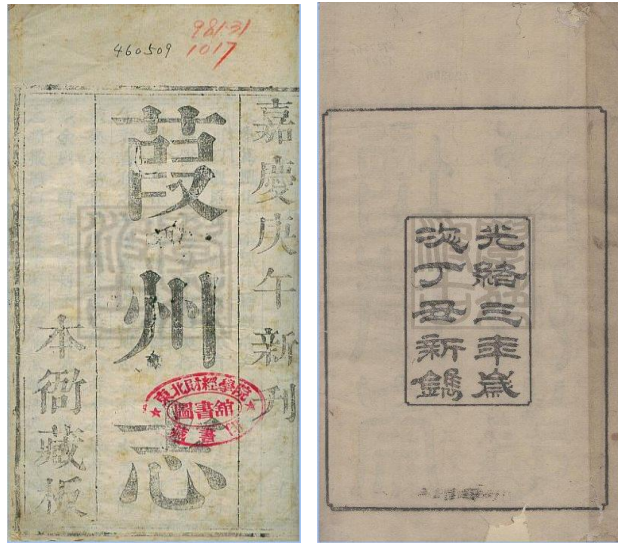 981·31
460509 1017
嘉慶庚午新刊
葭州志
本衙藏板
東北財經學院
圖書館
光緒三年歲
次丁丑新鐫